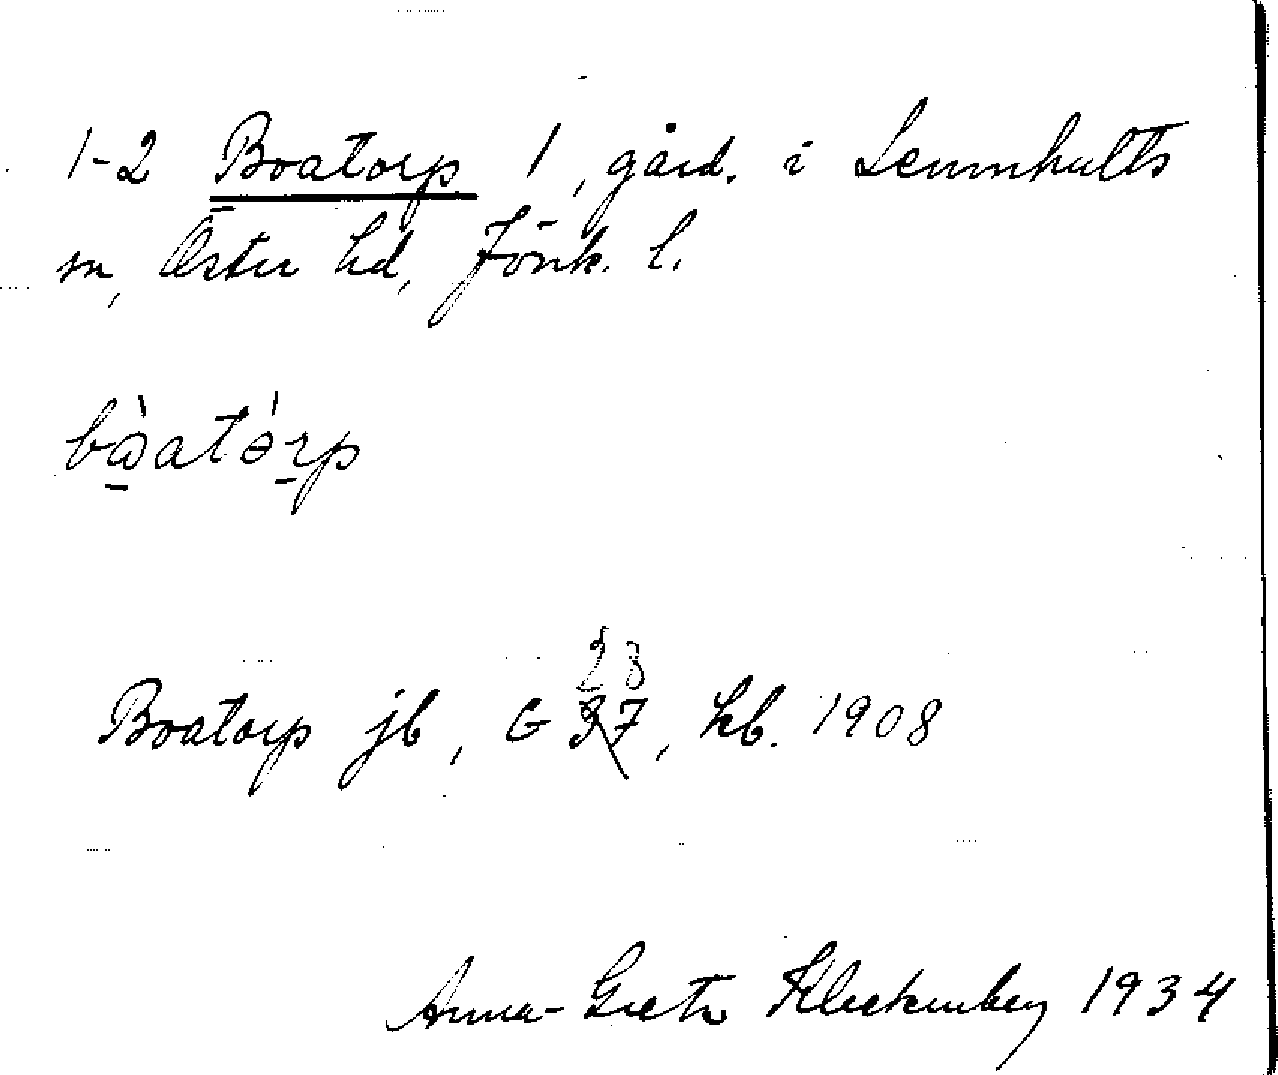 1-2 Boatorp 1, gård. i Lemnhults
sn, Öster hd, Jönk. l.
bòatórp
28
Boatorp jb, G 37, kb. 1908
Anna-Greta Kleckenberg 1934